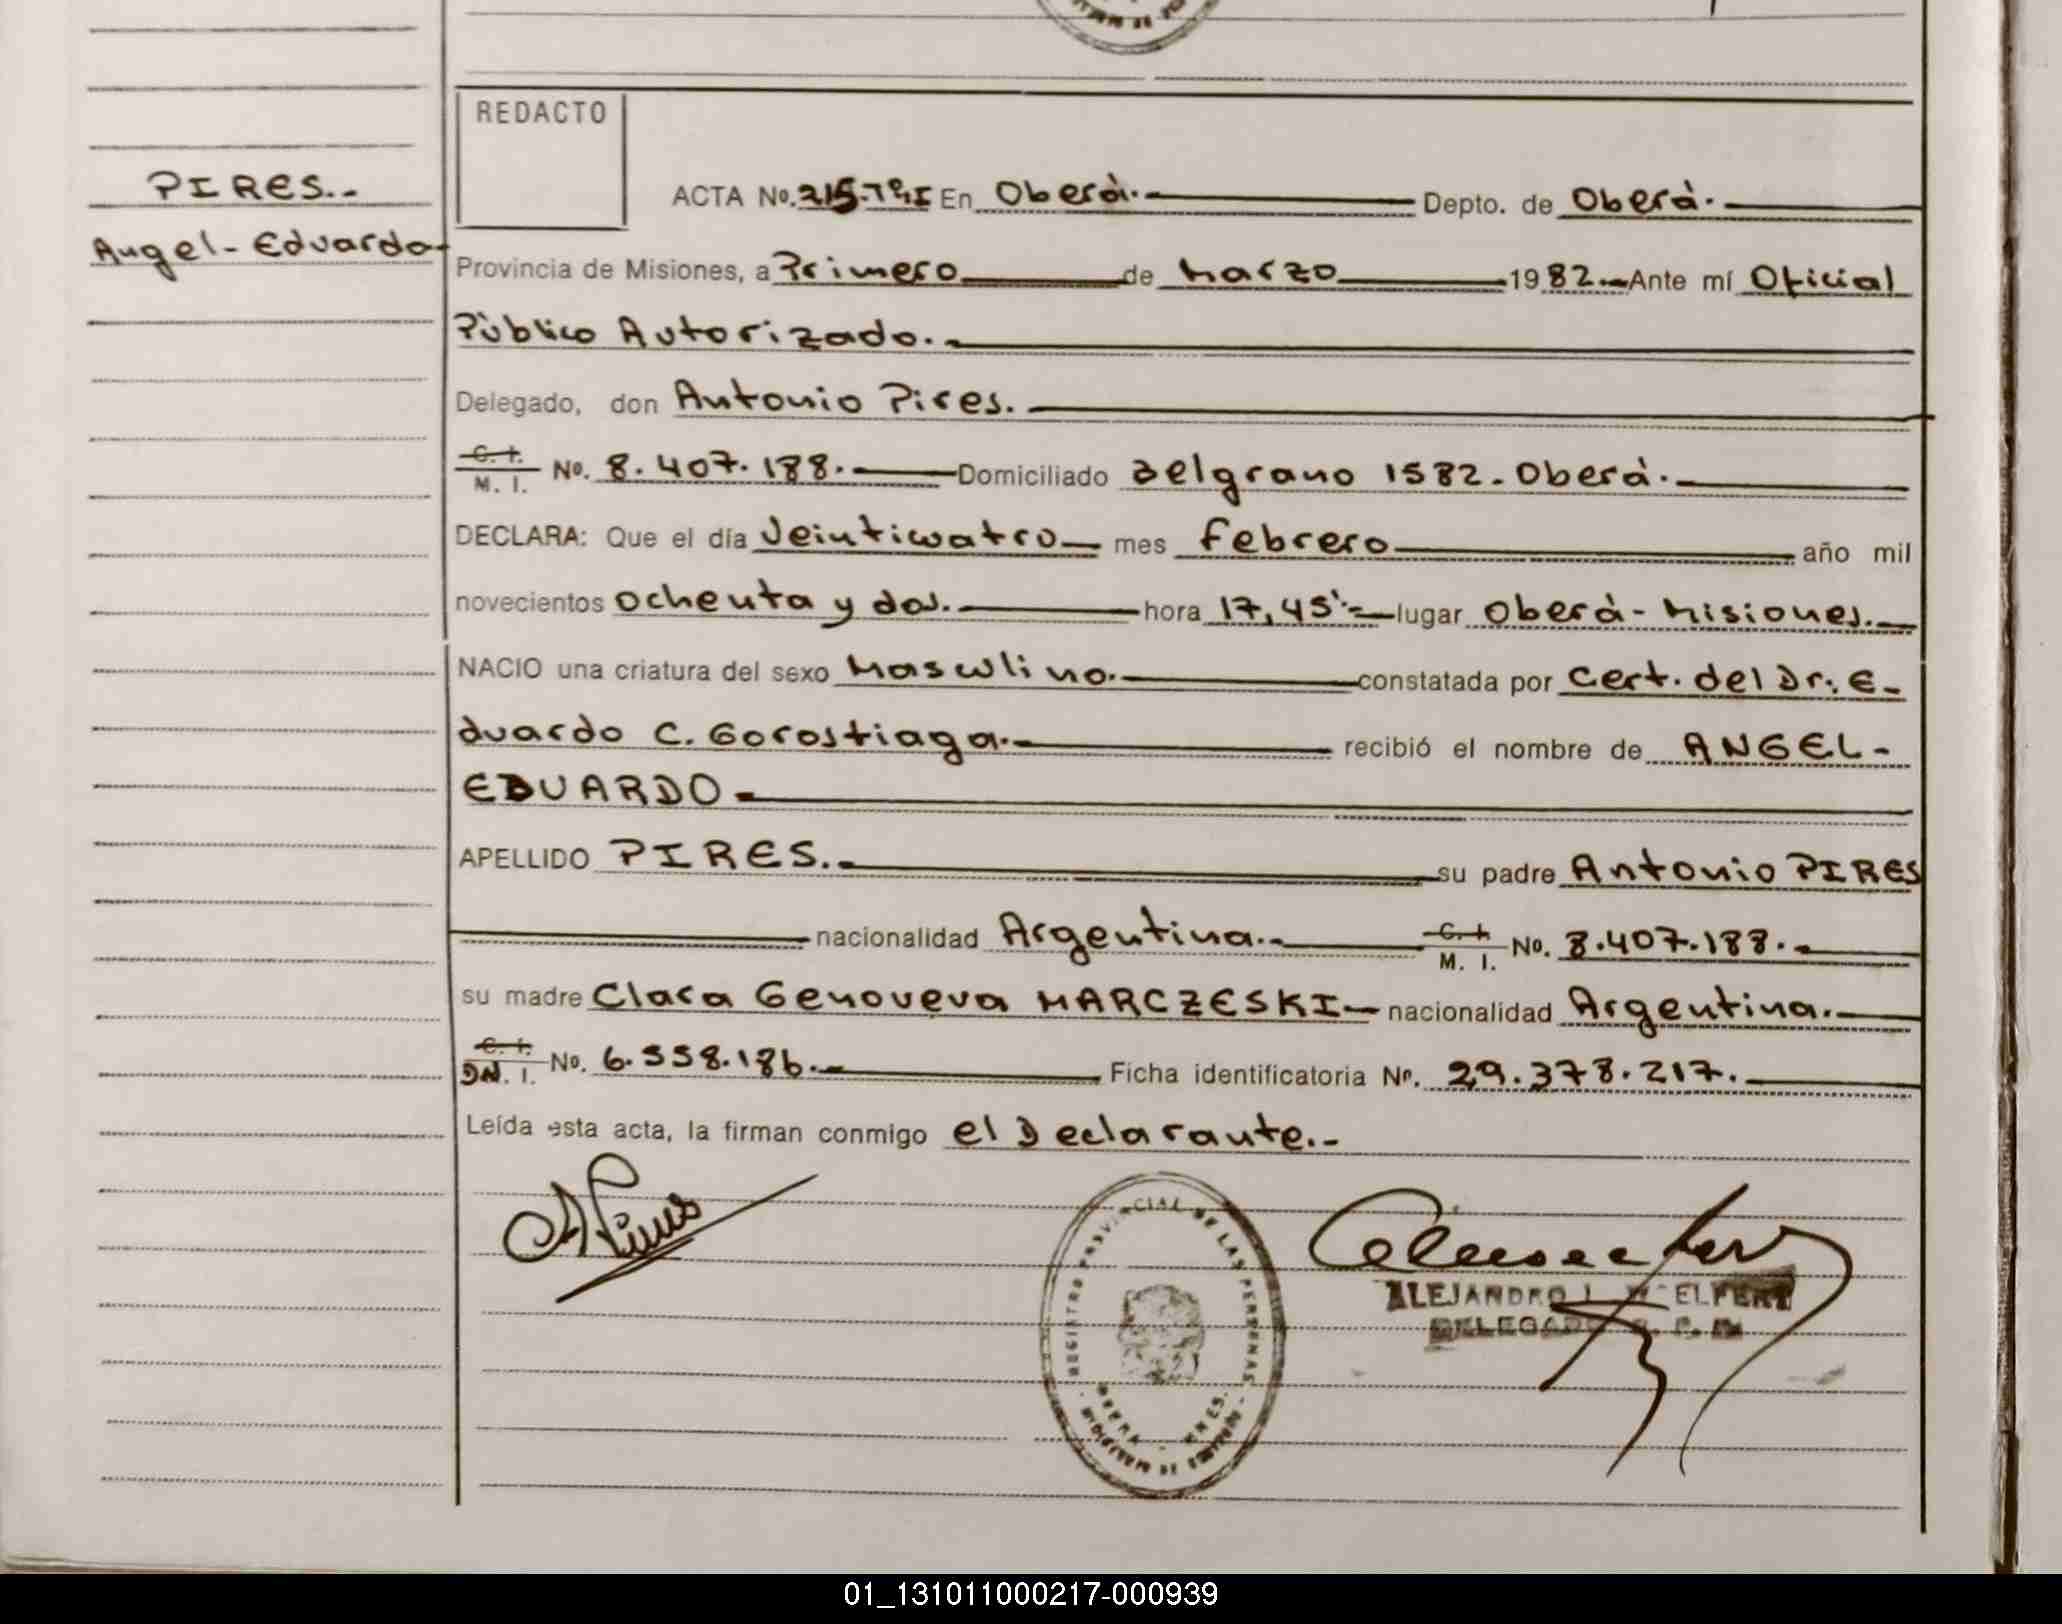 REDACTO
PIRES.-
Angel-Eduardo-
ACTA No. 215.Tº I En Oberà.- Depto. de Oberà.-
Provincia de Misiones, a Primero de Marzo 1982.- Ante mí Oficial
Pùblico Autorizado.-
Delegado, don Antonio Pires.-
C. I. M. I. No. 8.407.188.- Domiciliado Belgrano 1582-Oberà.-
DECLARA: Que el día Veinticuatro- mes Febrero- año mil
novecientos Ochenta y dos.- hora 17,45'- lugar Oberà-Misiones.-
NACIO una criatura del sexo Masculino.- constatada por Cert. del Dr. E-
duardo C. Gorostiaga.- recibió el nombre de ANGEL-
EDUARDO-
APELLIDO PIRES.- su padre Antonio PIRES
nacionalidad Argentina.- C. I. M. I. No. 8.407.188.-
su madre Clara Genoveva MARCZESKI- nacionalidad Argentina.-
C. I. DN. I. No. 6.558.186.- Ficha identificatoria No. 29.378.217.-
Leída esta acta, la firman conmigo el Declarante.-
REGISTRO PROVINCIAL DE LAS PERSONAS
ALEJANDRO L. WELFERT
DELEGADO R. P. P.
01_131011000217-000939